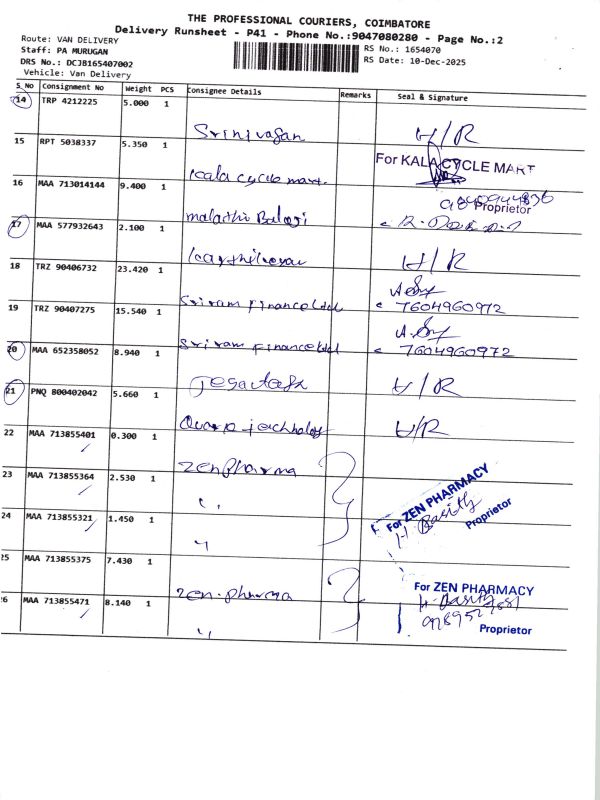 THE PROFESSIONAL COURIERS, COIMBATORE
Delivery Runsheet - P41 - Phone No.:9047080280 - Page No.:2
Route: VAN DELIVERY
Staff: PA MURUGAN
DRS No.: DCJB165407002
Vehicle: Van Delivery
RS No.: 1654070
RS Date: 10-Dec-2025
S_No Consignment No Weight PCS Consignee Details Remarks Seal & Signature
14 TRP 4212225 5.000 1 Srinivasan H/R
15 RPT 5038337 5.350 1 Kala cycle mart. For KALA CYCLE MART
Proprietor
16 MAA 713014144 9.400 1 malathi Balaji
17 MAA 577932643 2.100 1 H/R
18 TRZ 90406732 23.420 1 Sriram Finance Ltd 7604960972
19 TRZ 90407275 15.540 1 Sriram Finance Ltd 7604960972
20 MAA 652358052 8.940 1 H/R
21 PNQ 800402042 5.660 1 H/R
22 MAA 713855401 0.300 1 Zen pharma
23 MAA 713855364 2.530 1 "
For ZEN PHARMACY
Proprietor
24 MAA 713855321 1.450 1 "
25 MAA 713855375 7.430 1 Zen. pharma For ZEN PHARMACY
26 MAA 713855471 8.140 1 "
Proprietor